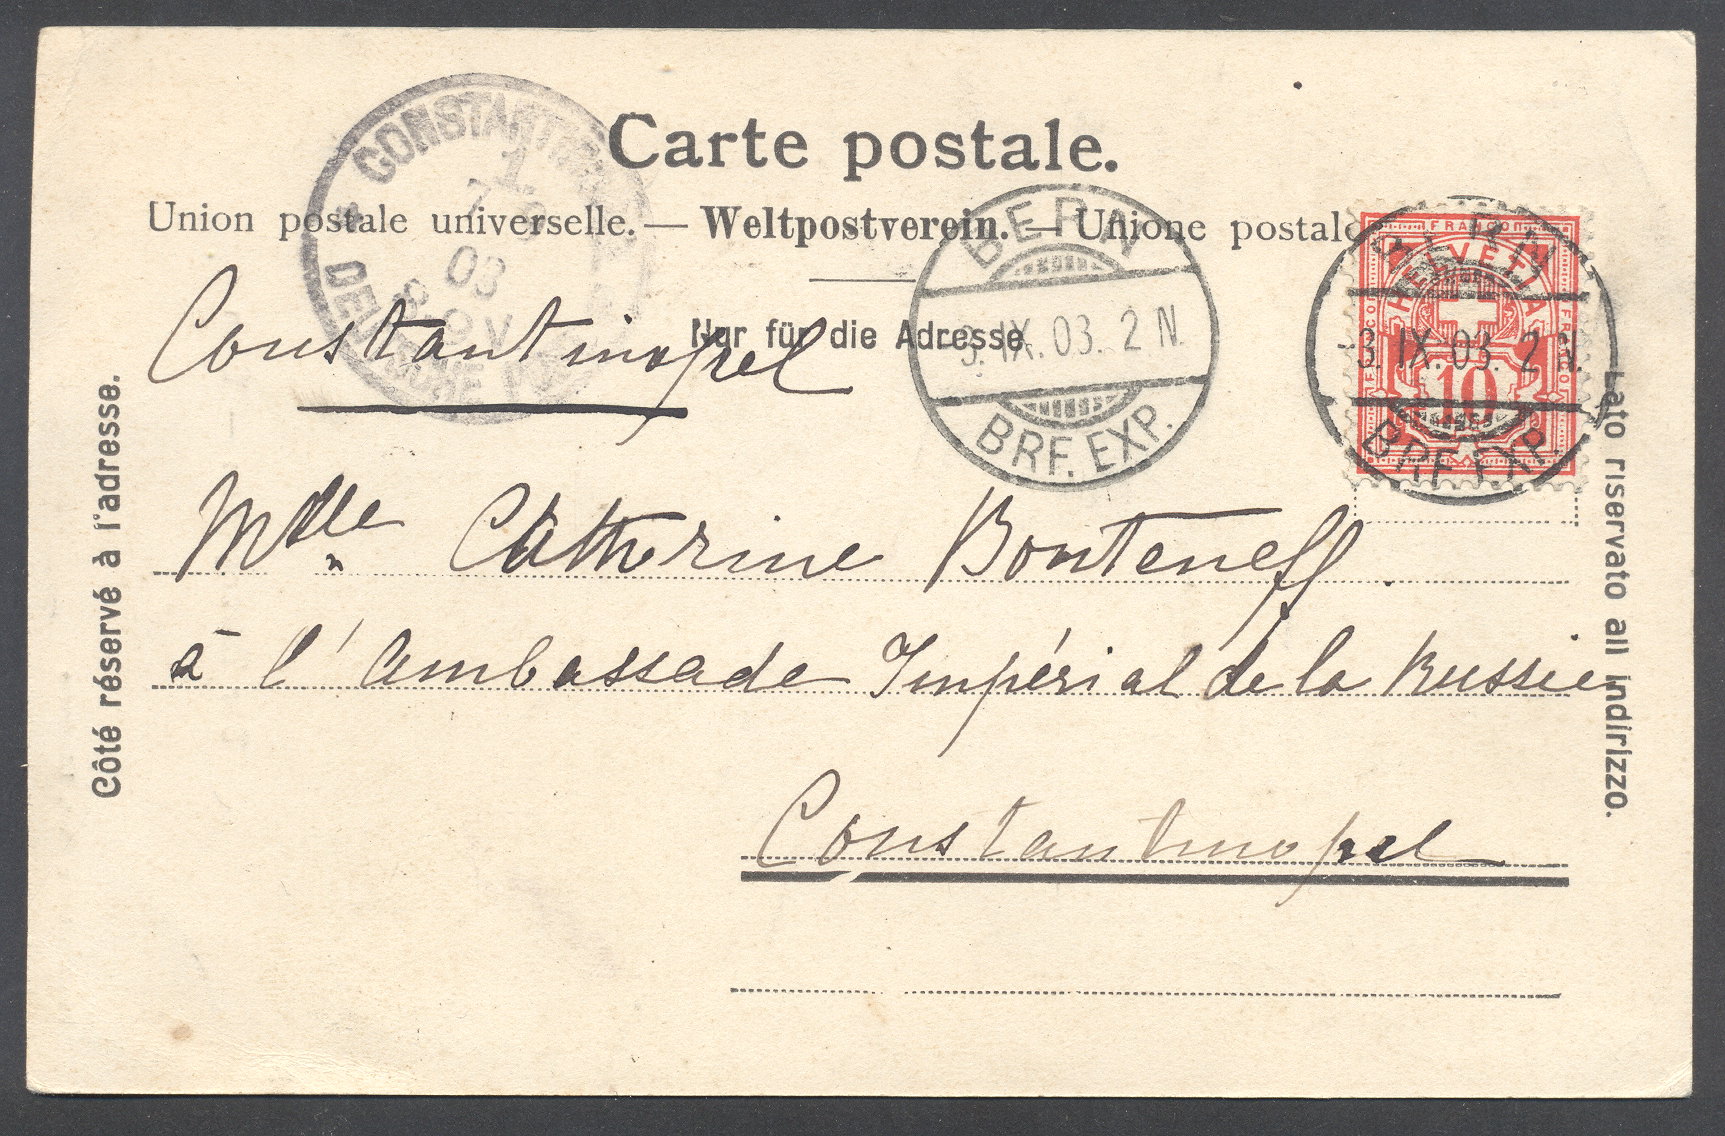 Carte postale.
Union postale universelle. — Weltpostverein. — Unione postale
Nur für die Adresse
Côté réservé à l'adresse.
Lato riservato all indirizzo.
CONSTANTIN
1.
7 9
03
BERN
3. IX. 03. 2 N.
BRF. EXP.
BERN
-3. IX. 03. 2 N.
BRF. EXP.
FRANCO
HELVETIA
10
Constantinopel
Mdlle Catherine Bonteneff.
à l'Ambassade Impérial de la Russie
Constantinopel